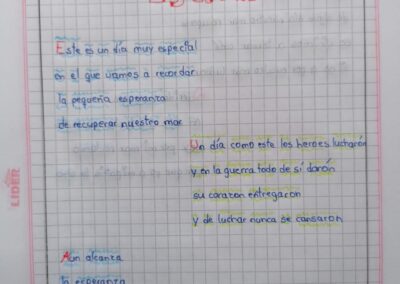 Este es un día muy especial
en el que vamos a recordar
la pequeña esperanza
de recuperar nuestro mar
Un día como este los heroes lucharón
y en la guerra todo de si darón
su corazon entregaron
y de luchar nunca se cansaron
Aun alcanza
la esperanza
LIDER